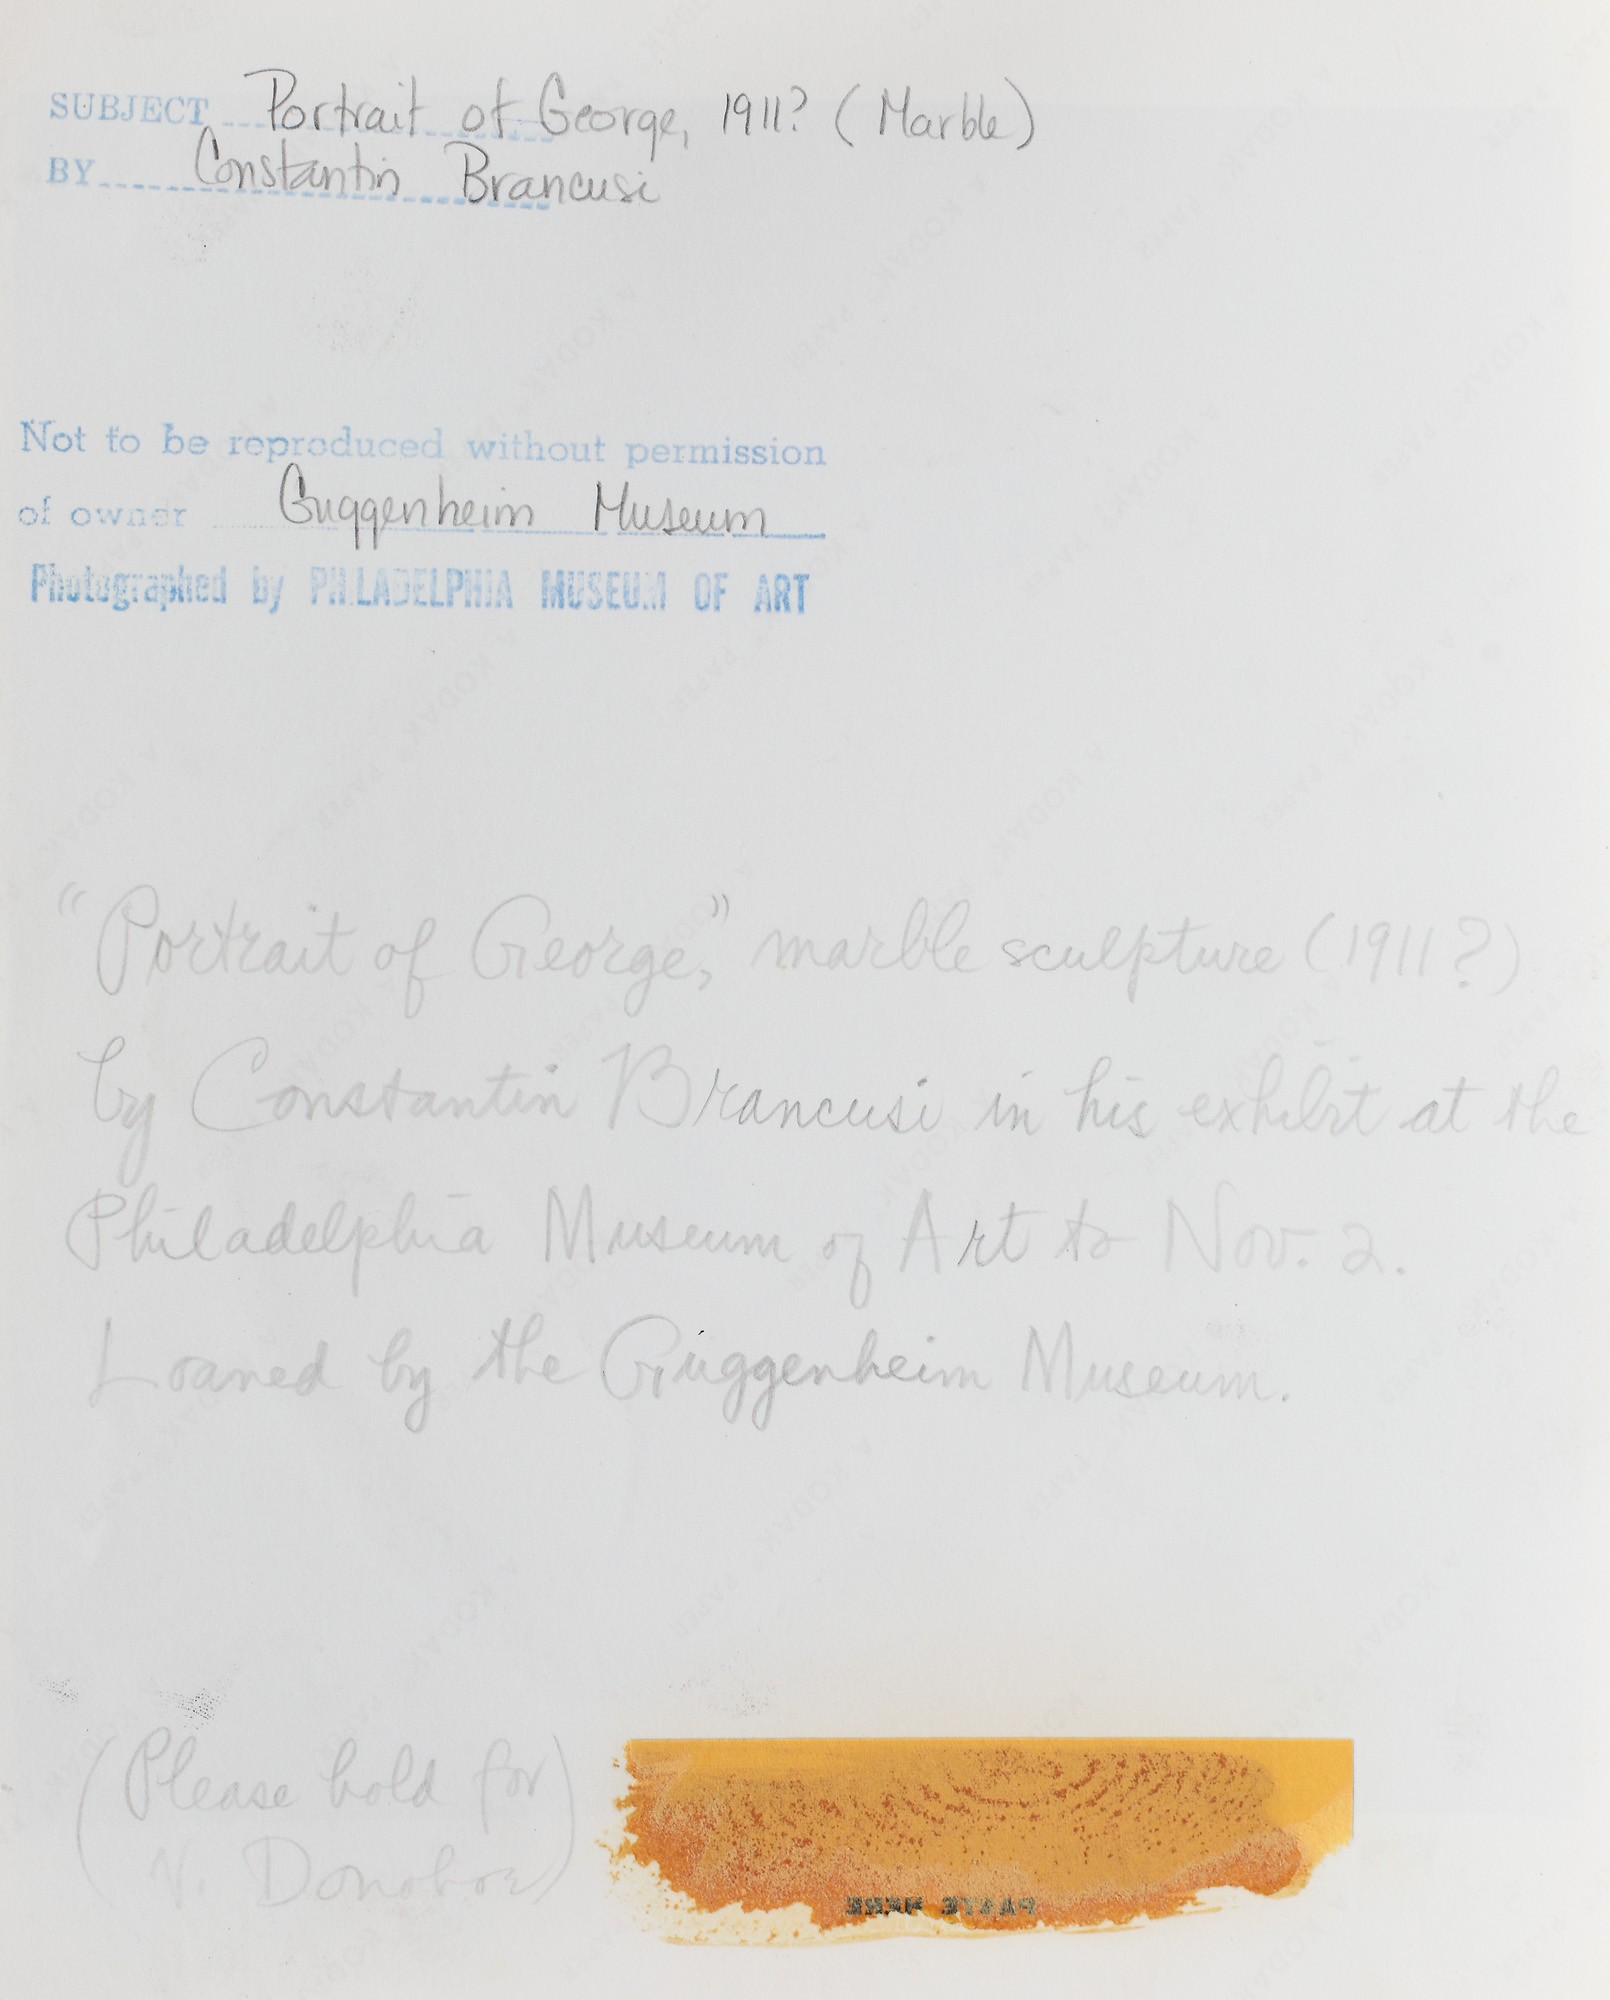 SUBJECT Portrait of George, 1911? (Marble)
BY Constantin Brancusi
Not to be reproduced without permission
of owner Guggenheim Museum
Photographed by PHILADELPHIA MUSEUM OF ART
"Portrait of George," marble sculpture (1911?)
by Constantin Brancusi in his exhibit at the
Philadelphia Museum of Art to Nov. 2.
Loaned by the Guggenheim Museum.
(Please hold for
V. Donohoe)
PASTE HERE